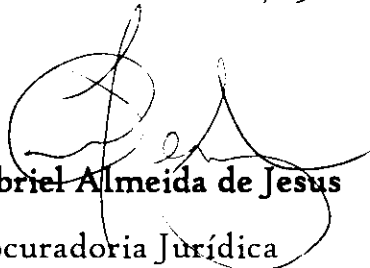 briel Almeida de Jesus
ocuradoria Jurídica